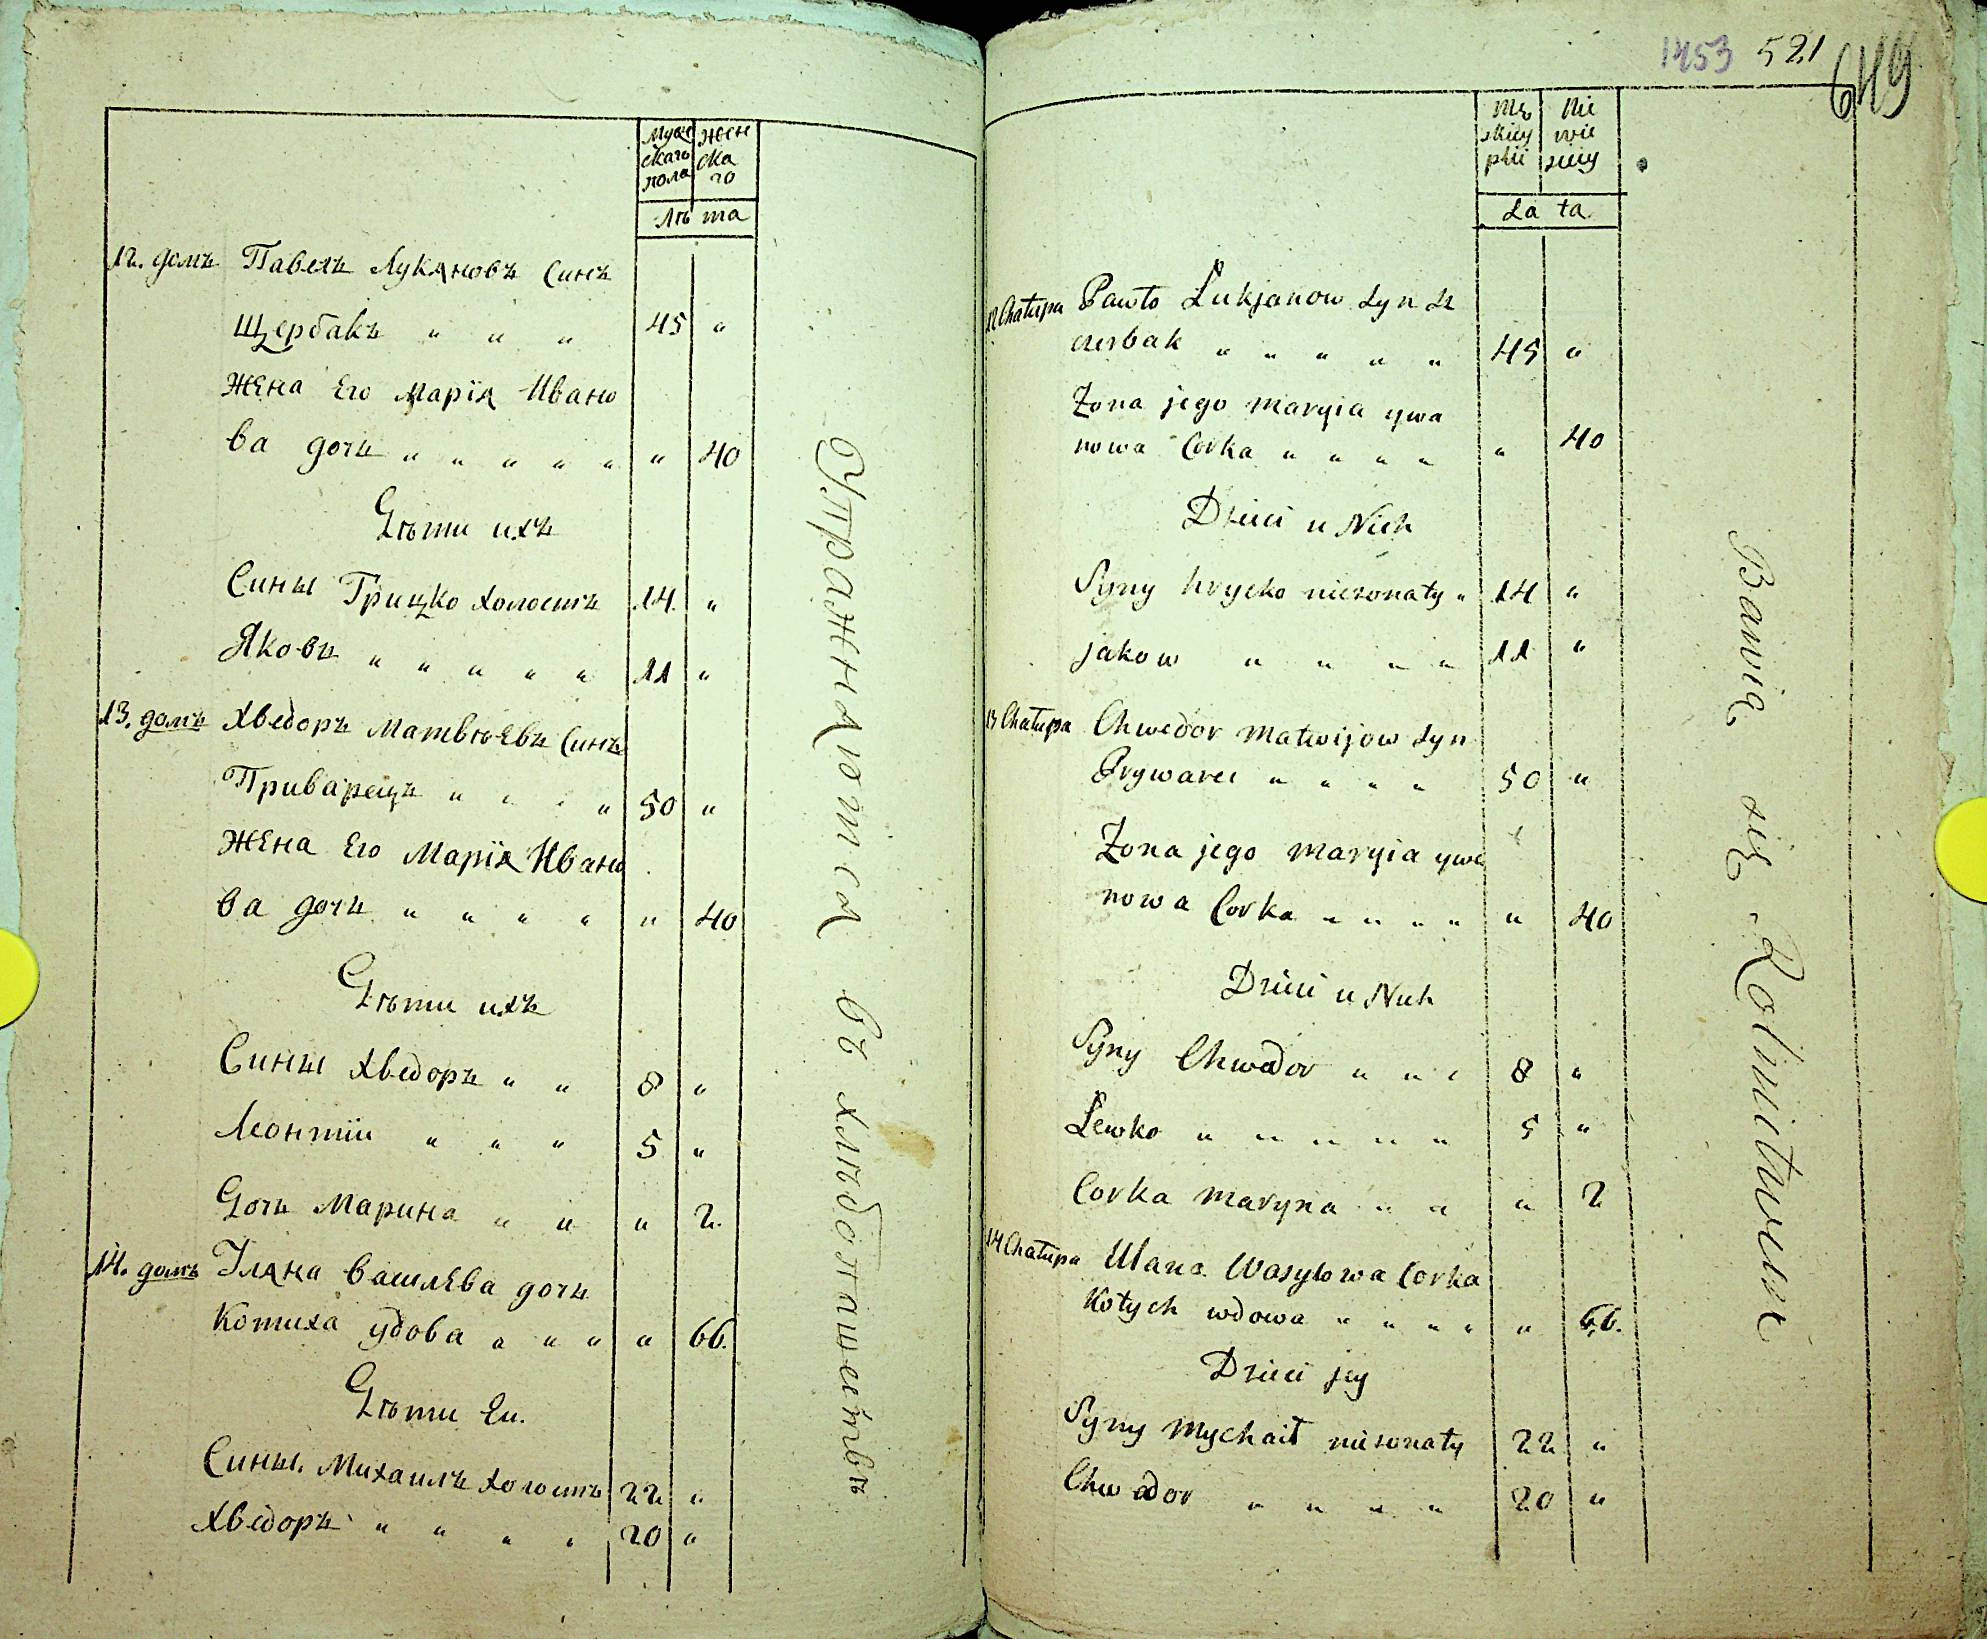 Муже Жен
скаго ска
пола го
Лѣ та
12. домъ Павелъ Лукяновъ Синъ
Щербакъ " " " 45 "
Жена Его Марїя Ивано
ва дочь " " " " " " 40
Дѣти ихъ
Сины Грицко холостъ 14. "
Яковъ " " " " " 11 "
13. домъ Хведоръ Матвѣевъ Синъ
Приварецъ " " " " 50 "
Жена Его Марїя Ивано
ва дочь " " " " " 40
Дѣти ихъ
Сины Хведоръ " " 8 "
Леонтїи " " " 5 "
Дочь Марина " " " 2.
14. домъ Уляна Василева дочь
Котиха удова " " " " 66.
Дѣти Еи.
Сины. Михаилъ холостъ 22 "
Хведоръ " " " " 20 "
Упражняются въ хлѣбопашествѣ
1453 521
649
Mę Nie
skiey wie
płci sciey
La ta
12 Chałupa Pawło Łukjanow Syn Sz
czerbak " " " " " 45 "
Zona jego Maryia ywa
nowa Corka " " " " " 40
Dzieci u Nich
Syny hrycko niezonaty " 14 "
jakow " " " " 11 "
13 Chałupa Chwedor Matwijow Syn
Prywarec " " " " 50 "
Zona jego Maryia ywa
nowa Corka " " " " " 40
Dzieci u Nich
Syny Chwedor " " " 8 "
Lewko " " " " " 5 "
Corka Maryna " " " 2
14 Chałupa Ulana Wasylowa Corka
Kotych wdowa " " " " " 66.
Dzieci jey
Syny Mychaił niezonaty 22 "
Chwedor " " " " 20 "
Bawią się Rolnictwem